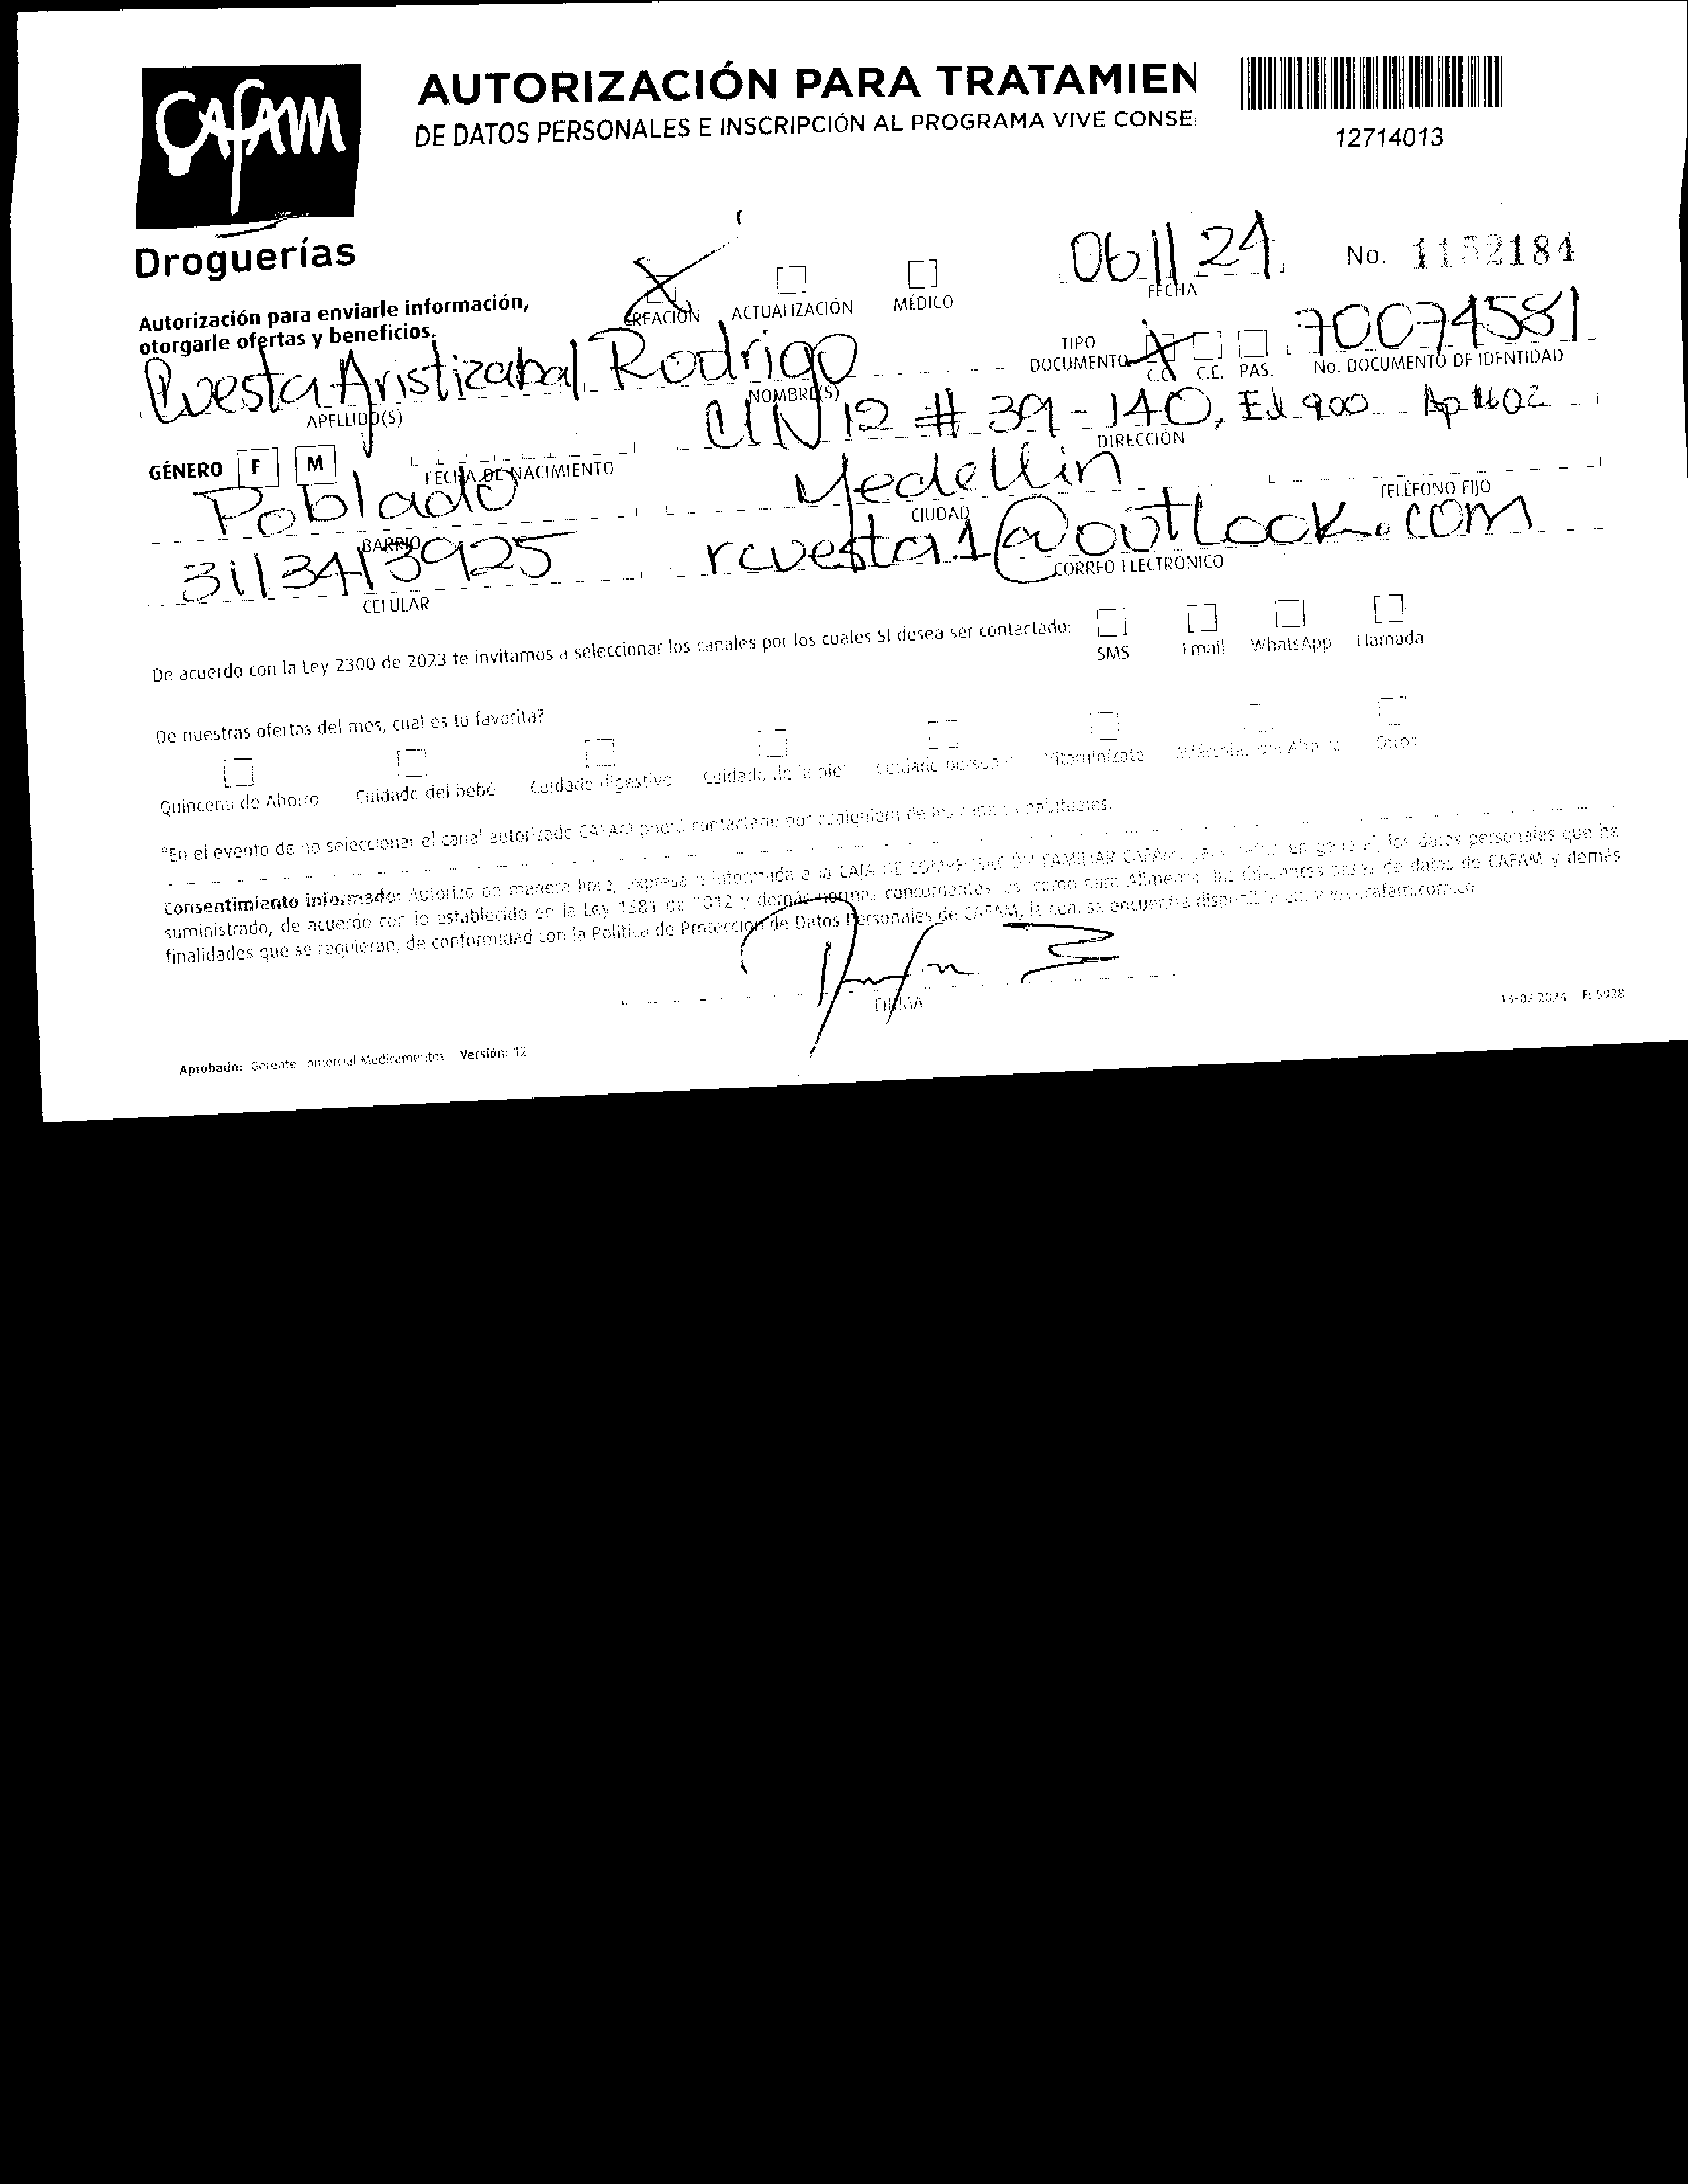 CAFAM
Droguerías
AUTORIZACIÓN PARA TRATAMIEN
DE DATOS PERSONALES E INSCRIPCIÓN AL PROGRAMA VIVE CONSE
12714013
Autorización para enviarle información,
otorgarle ofertas y beneficios.
CREACIÓN ACTUALIZACIÓN MÉDICO
06 11 24
FECHA
No. 1152184
TIPO
DOCUMENTO C.C. C.E. PAS.
70074581
No. DOCUMENTO DE IDENTIDAD
Cuesta Aristizabal Rodrigo
APELLIDO(S) NOMBRE(S)
12 # 39-140, Ed 900 Ap 1602
DIRECCIÓN
GÉNERO F M FECHA DE NACIMIENTO
Poblado Medellin
BARRIO CIUDAD TELÉFONO FIJO
3113413925 rcuesta1@outlook.com
CELULAR CORREO ELECTRÓNICO
De acuerdo con la Ley 2300 de 2023 te invitamos a seleccionar los canales por los cuales SI desea ser contactado:
SMS Email WhatsApp Llamada
De nuestras ofertas del mes, cual es tu favorita?
Quincena de Ahorro Cuidado del bebé Cuidado digestivo Cuidado de la piel Cuidado personal Vitaminízate Otros
"En el evento de no seleccionar el canal autorizado CAFAM podrá contactarte por cualquiera de los canales habituales.
Consentimiento informado: Autorizo de manera libre, expresa e informada a la CAJA DE COMPENSACIÓN FAMILIAR CAFAM, para en general, los datos personales que he
suministrado, de acuerdo con lo establecido en la Ley 1581 de 2012 y demás normas concordantes, así como para Alimentar las diferentes bases de datos de CAFAM y demás
finalidades que se requieran, de conformidad con la Política de Protección de Datos Personales de CAFAM, la cual se encuentra disponible en: www.cafam.com.co
FIRMA
Aprobado: Gerente Comercial Medicamentos Versión: 12
13-02-2024 F: 5928